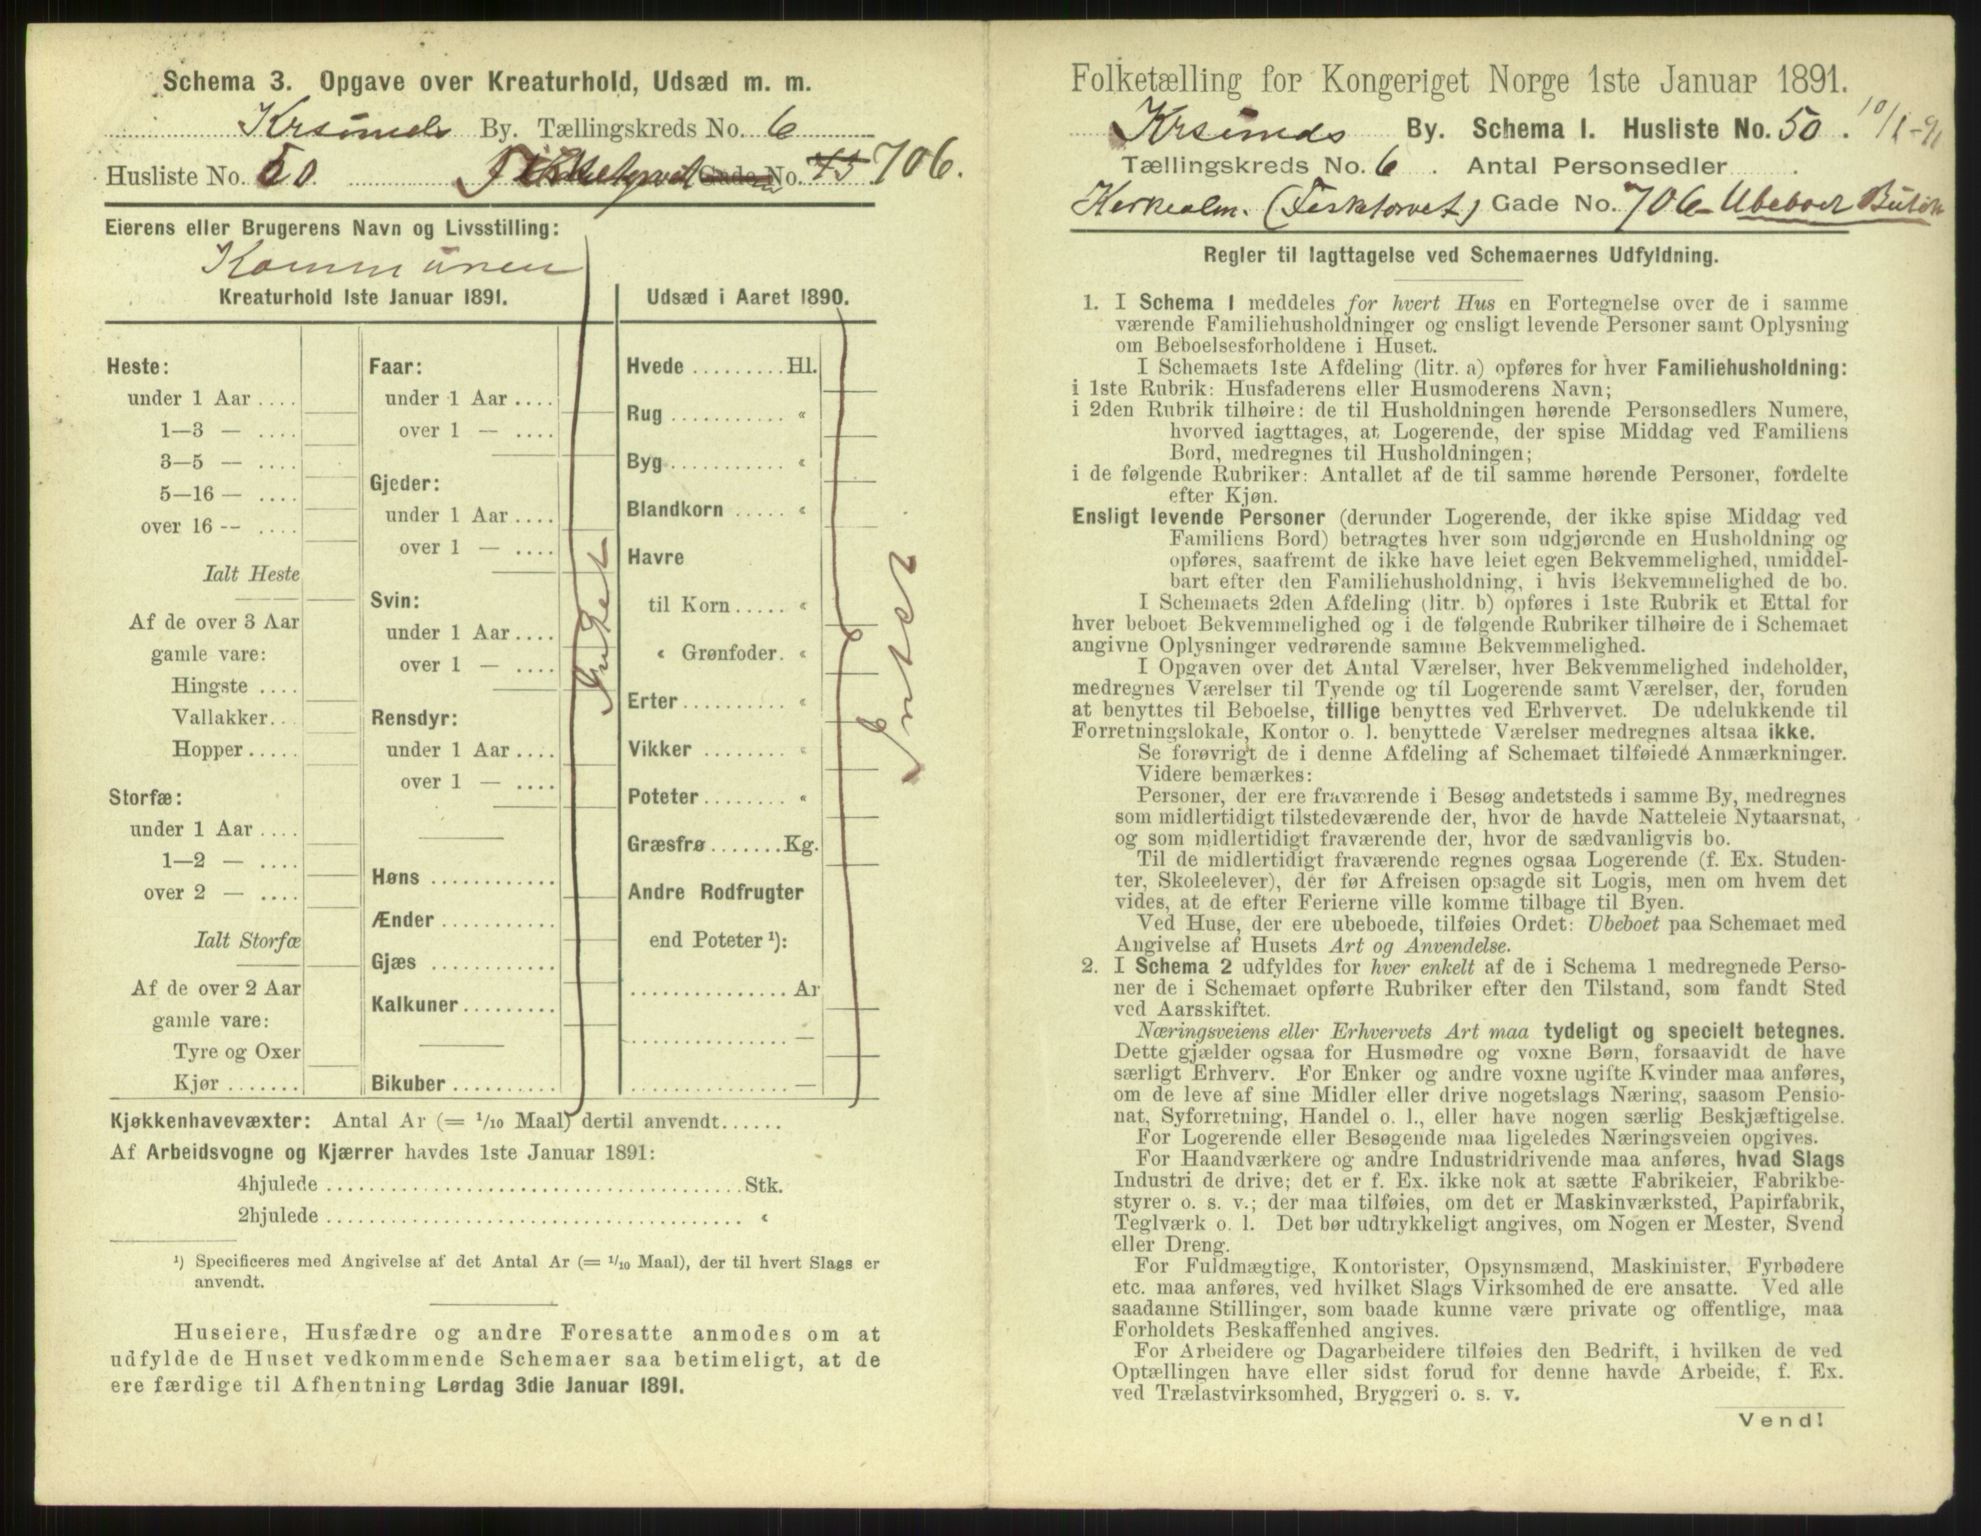 Schema 3. Opgave over Kreaturhold, Udsæd m. m.
Krsunds By. Tællingskreds No. 6
Husliste No. 50. Fisketorvet Gade No. 45 706.
Eierens eller Brugerens Navn og Livsstilling:
Kommunen
Kreaturhold 1ste Januar 1891.
Heste:
under 1 Aar ....
1—3 — ....
3—5 — ....
5—16 — ....
over 16 -- ....
Ialt Heste
Af de over 3 Aar
gamle vare:
Hingste ....
Vallakker...
Hopper.....
Storfæ:
under 1 Aar ....
1—2 — ....
over 2 — ....
Ialt Storfæ
Af de over 2 Aar
gamle vare:
Tyre og Oxer
Kjør .......
Faar:
under 1 Aar ....
over 1 — ....
Gjeder:
under 1 Aar ....
over 1 — ....
Svin:
under 1 Aar....
over 1 — ....
Rensdyr:
under 1 Aar ....
over 1 — ....
Høns ............
Ænder ...........
Gjæs ............
Kalkuner.........
Bikuber ..........
Intet
Udsæd i Aaret 1890.
Hvede .........Hl.
Rug ........... «
Byg........... «
Blandkorn ..... «
Havre
til Korn ..... «
« Grønfoder. «
Erter.......... «
Vikker ........ «
Poteter........ «
Græsfrø.......Kg.
Andre Rodfrugter
end Poteter ¹):
............... Ar
............... —
............... —
Intet
Kjøkkenhavevæxter: Antal Ar (= 1/10 Maal) dertil anvendt......
Af Arbeidsvogne og Kjærrer havdes 1ste Januar 1891:
4hjulede ........................................Stk.
2hjulede ........................................ «
¹) Specificeres med Angivelse af det Antal Ar (= 1/10 Maal), der til hvert Slags er
anvendt.
Huseiere, Husfædre og andre Foresatte anmodes om at
udfylde de Huset vedkommende Schemaer saa betimeligt, at de
ere færdige til Afhentning Lørdag 3die Januar 1891.
Folketælling for Kongeriget Norge 1ste Januar 1891.
Krsunds By. Schema I. Husliste No. 50. 10/1-91
Tællingskreds No. 6. Antal Personsedler
(Fisktorvet) Gade No. 706 Ubeboet
Regler til Iagttagelse ved Schemaernes Udfyldning.
1. I Schema I meddeles for hvert Hus en Fortegnelse over de i samme
værende Familiehusholdninger og ensligt levende Personer samt Oplysning
om Beboelsesforholdene i Huset.
I Schemaets 1ste Afdeling (litr. a) opføres for hver Familiehusholdning:
i 1ste Rubrik: Husfaderens eller Husmoderens Navn;
i 2den Rubrik tilhøire: de til Husholdningen hørende Personsedlers Numere,
hvorved iagttages, at Logerende, der spise Middag ved Familiens
Bord, medregnes til Husholdningen;
i de følgende Rubriker: Antallet af de til samme hørende Personer, fordelte
efter Kjøn.
Ensligt levende Personer (derunder Logerende, der ikke spise Middag ved
Familiens Bord) betragtes hver som udgjørende en Husholdning og
opføres, saafremt de ikke have leiet egen Bekvemmelighed, umiddel-
bart efter den Familiehusholdning, i hvis Bekvemmelighed de bo.
I Schemaets 2den Afdeling (litr. b) opføres i 1ste Rubrik et Ettal for
hver beboet Bekvemmelighed og i de følgende Rubriker tilhøire de i Schemaet
angivne Oplysninger vedrørende samme Bekvemmelighed.
I Opgaven over det Antal Værelser, hver Bekvemmelighed indeholder,
medregnes Værelser til Tyende og til Logerende samt Værelser, der, foruden
at benyttes til Beboelse, tillige benyttes ved Erhvervet. De udelukkende til
Forretningslokale, Kontor o. l. benyttede Værelser medregnes altsaa ikke.
Se forøvrigt de i denne Afdeling af Schemaet tilføiede Anmærkninger.
Videre bemærkes:
Personer, der ere fraværende i Besøg andetsteds i samme By, medregnes
som midlertidigt tilstedeværende der, hvor de havde Natteleie Nytaarsnat,
og som midlertidigt fraværende der, hvor de sædvanligvis bo.
Til de midlertidigt fraværende regnes ogsaa Logerende (f. Ex. Studen-
ter, Skoleelever), der før Afreisen opsagde sit Logis, men om hvem det
vides, at de efter Ferierne ville komme tilbage til Byen.
Ved Huse, der ere ubeboede, tilføies Ordet: Ubeboet paa Schemaet med
Angivelse af Husets Art og Anvendelse.
2. I Schema 2 udfyldes for hver enkelt af de i Schema 1 medregnede Perso-
ner de i Schemaet opførte Rubriker efter den Tilstand, som fandt Sted
ved Aarsskiftet.
Næringsveiens eller Erhvervets Art maa tydeligt og specielt betegnes.
Dette gjælder ogsaa for Husmødre og voxne Børn, forsaavidt de have
særligt Erhverv. For Enker og andre voxne ugifte Kvinder maa anføres,
om de leve af sine Midler eller drive nogetslags Næring, saasom Pensio-
nat, Syforretning, Handel o. l., eller have nogen særlig Beskjæftigelse.
For Logerende eller Besøgende maa ligeledes Næringsveien opgives.
For Haandværkere og andre Industridrivende maa anføres, hvad Slags
Industri de drive; det er f. Ex. ikke nok at sætte Fabrikeier, Fabrikbe-
styrer o. s. v.; der maa tilføies, om det er Maskinværksted, Papirfabrik,
Teglværk o. l. Det bør udtrykkeligt angives, om Nogen er Mester, Svend
eller Dreng.
For Fuldmægtige, Kontorister, Opsynsmænd, Maskinister, Fyrbødere
etc. maa anføres, ved hvilket Slags Virksomhed de ere ansatte. Ved alle
saadanne Stillinger, som baade kunne være private og offentlige, maa
Forholdets Beskaffenhed angives.
For Arbeidere og Dagarbeidere tilføies den Bedrift, i hvilken de ved
Optællingen have eller sidst forud for denne havde Arbeide, f. Ex.
ved Trælastvirksomhed, Bryggeri o. s. v.
Vend!